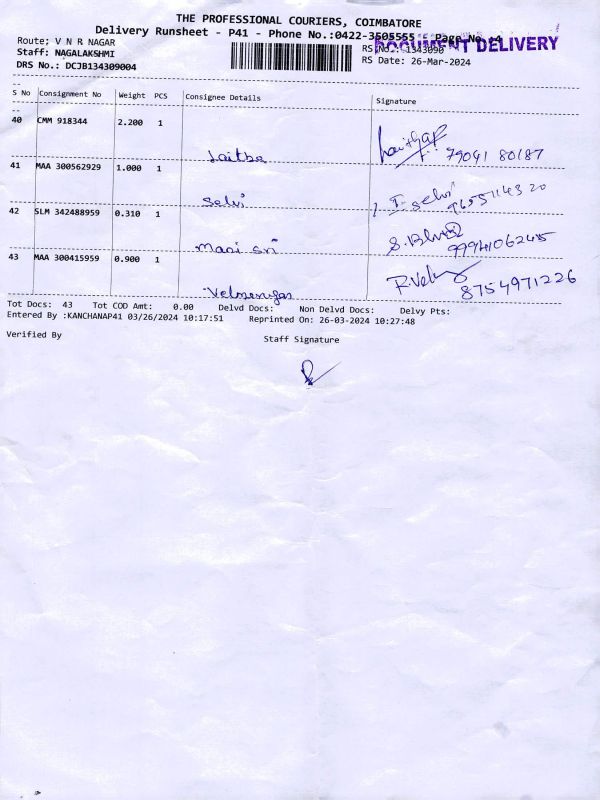 THE PROFESSIONAL COURIERS, COIMBATORE
Delivery Runsheet - P41 - Phone No.:0422-3505555 Page No.:4
DOCUMENT DELIVERY
Route; V N R NAGAR
RS No.: 1343090
Staff: NAGALAKSHMI
RS Date: 26-Mar-2024
DRS No.: DCJB134309004
--
S No Consignment No Weight PCS Consignee Details Signature
--
40 CMM 918344 2.200 1
79041 80187
41 MAA 300562929 1.000 1
Selvi I. Selvi
42 SLM 342488959 0.310 1
Mani Sri 9994106245
43 MAA 300415959 0.900 1
8754971226
Velmurugan
Tot Docs: 43 Tot COD Amt: 0.00 Delvd Docs: Non Delvd Docs: Delvy Pts:
Entered By :KANCHANAP41 03/26/2024 10:17:51 Reprinted On: 26-03-2024 10:27:48
Verified By Staff Signature